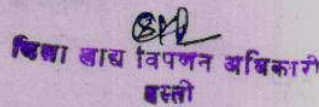 जिला खाद्य विपणन अधिकारी
बस्ती